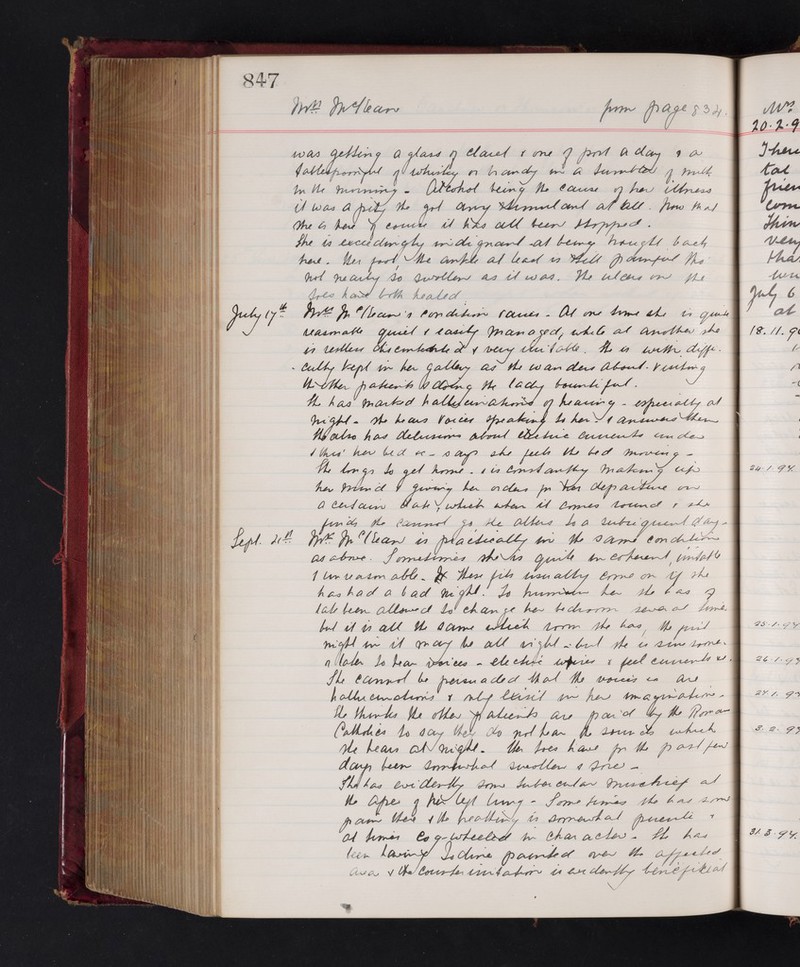 847
Mrs McLean from page 834.
was getting a glass of claret & one of port a day & a
tablespoonful of whisky or brandy in a tumbler of milk
in the morning - Alcohol being the cause of her illness
it was a pity she got any stimulant at all. Now that
she is here of course it has all been stopped.
She is exceedingly indignant at being brought back
here. Her foot, the ankle at least is still painful tho
not nearly so swollen as it was. The ulcers on the
toes have both healed.
July 17th Mrs McLean's condition varies - At one time she is quite
reasonable quiet & easily managed, while at another she
is restless discontented & very irritable. She is with diffi-
-culty kept in her gallery as she wanders about visiting
the other patients & doing the lady bountiful.
She has marked hallucinations of hearing - especially at
night - she hears voices speaking to her & answers them
She also has delusions about electric currents under
& thro' her bed - says she feels the bed moving -
She longs to get home - & is constantly making up
her mind & giving her orders for her departure on
a certain date, which when it comes round & she
finds she cannot go she alters to a subsequent day -
Sept. 21st Mrs McLean is practically in the same condition
as above. Sometimes she is quite incoherent, irritable
& unreasonable - These fits usually come on if she
has had a bad night. To humour her she has of
late been allowed to change her bedroom several times
but it is all the same which room she has, the first
night in it may be all right - but she is sure sooner
or later to hear voices - electric wires & feel currents &c.
She cannot be persuaded that the voices are
hallucinations & only exist in her imagination -
She thinks the other patients are paid by the Roman
Catholics to say they do not hear the sounds which
she hears at night - Her toes have for the past few
days been somewhat swollen & sore -
She has evidently some tubercular mischief at
the apex of her left lung - Sometimes she has some
pain there & the breathing is somewhat puerile &
at times cog-wheeled in character - She has
been having Iodine painted over the affected
area & the counter irritation is evidently beneficial
Mrs
20.2.9
There
tat
frien
com
thin
very
tha
July 6
at
18.11.9
24.1.94
25.1.94
26.1.94
27.1.94
3.2.94
31.3.94